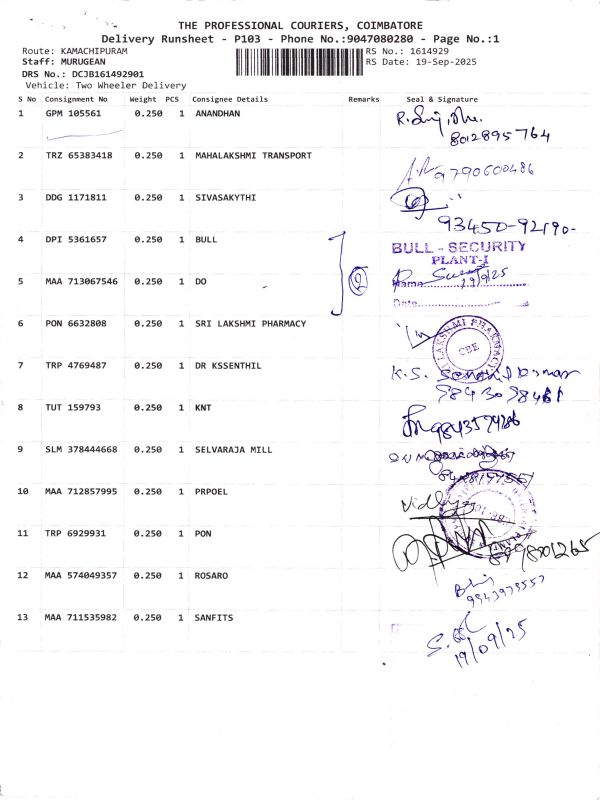 THE PROFESSIONAL COURIERS, COIMBATORE
Delivery Runsheet - P103 - Phone No.:9047080280 - Page No.:1
Route: KAMACHIPURAM RS No.: 1614929
Staff: MURUGEAN RS Date: 19-Sep-2025
DRS No.: DCJB161492901
Vehicle: Two Wheeler Delivery
S No Consignment No Weight PCS Consignee Details Remarks Seal & Signature
1 GPM 105561 0.250 1 ANANDHAN
8012895764
2 TRZ 65383418 0.250 1 MAHALAKSHMI TRANSPORT
9790600486
3 DDG 1171811 0.250 1 SIVASAKYTHI
93450-92190-
4 DPI 5361657 0.250 1 BULL
BULL - SECURITY
PLANT-I
5 MAA 713067546 0.250 1 DO
2
Name 19/9/25
Date
6 PON 6632808 0.250 1 SRI LAKSHMI PHARMACY
LAKSHMI PHARMACY
CBE
7 TRP 4769487 0.250 1 DR KSSENTHIL
K.S.
98430 98461
8 TUT 159793 0.250 1 KNT
9 SLM 378444668 0.250 1 SELVARAJA MILL
10 MAA 712857995 0.250 1 PRPOEL
Vidhya
11 TRP 6929931 0.250 1 PON
12 MAA 574049357 0.250 1 ROSARO
9943975557
13 MAA 711535982 0.250 1 SANFITS
19/09/25